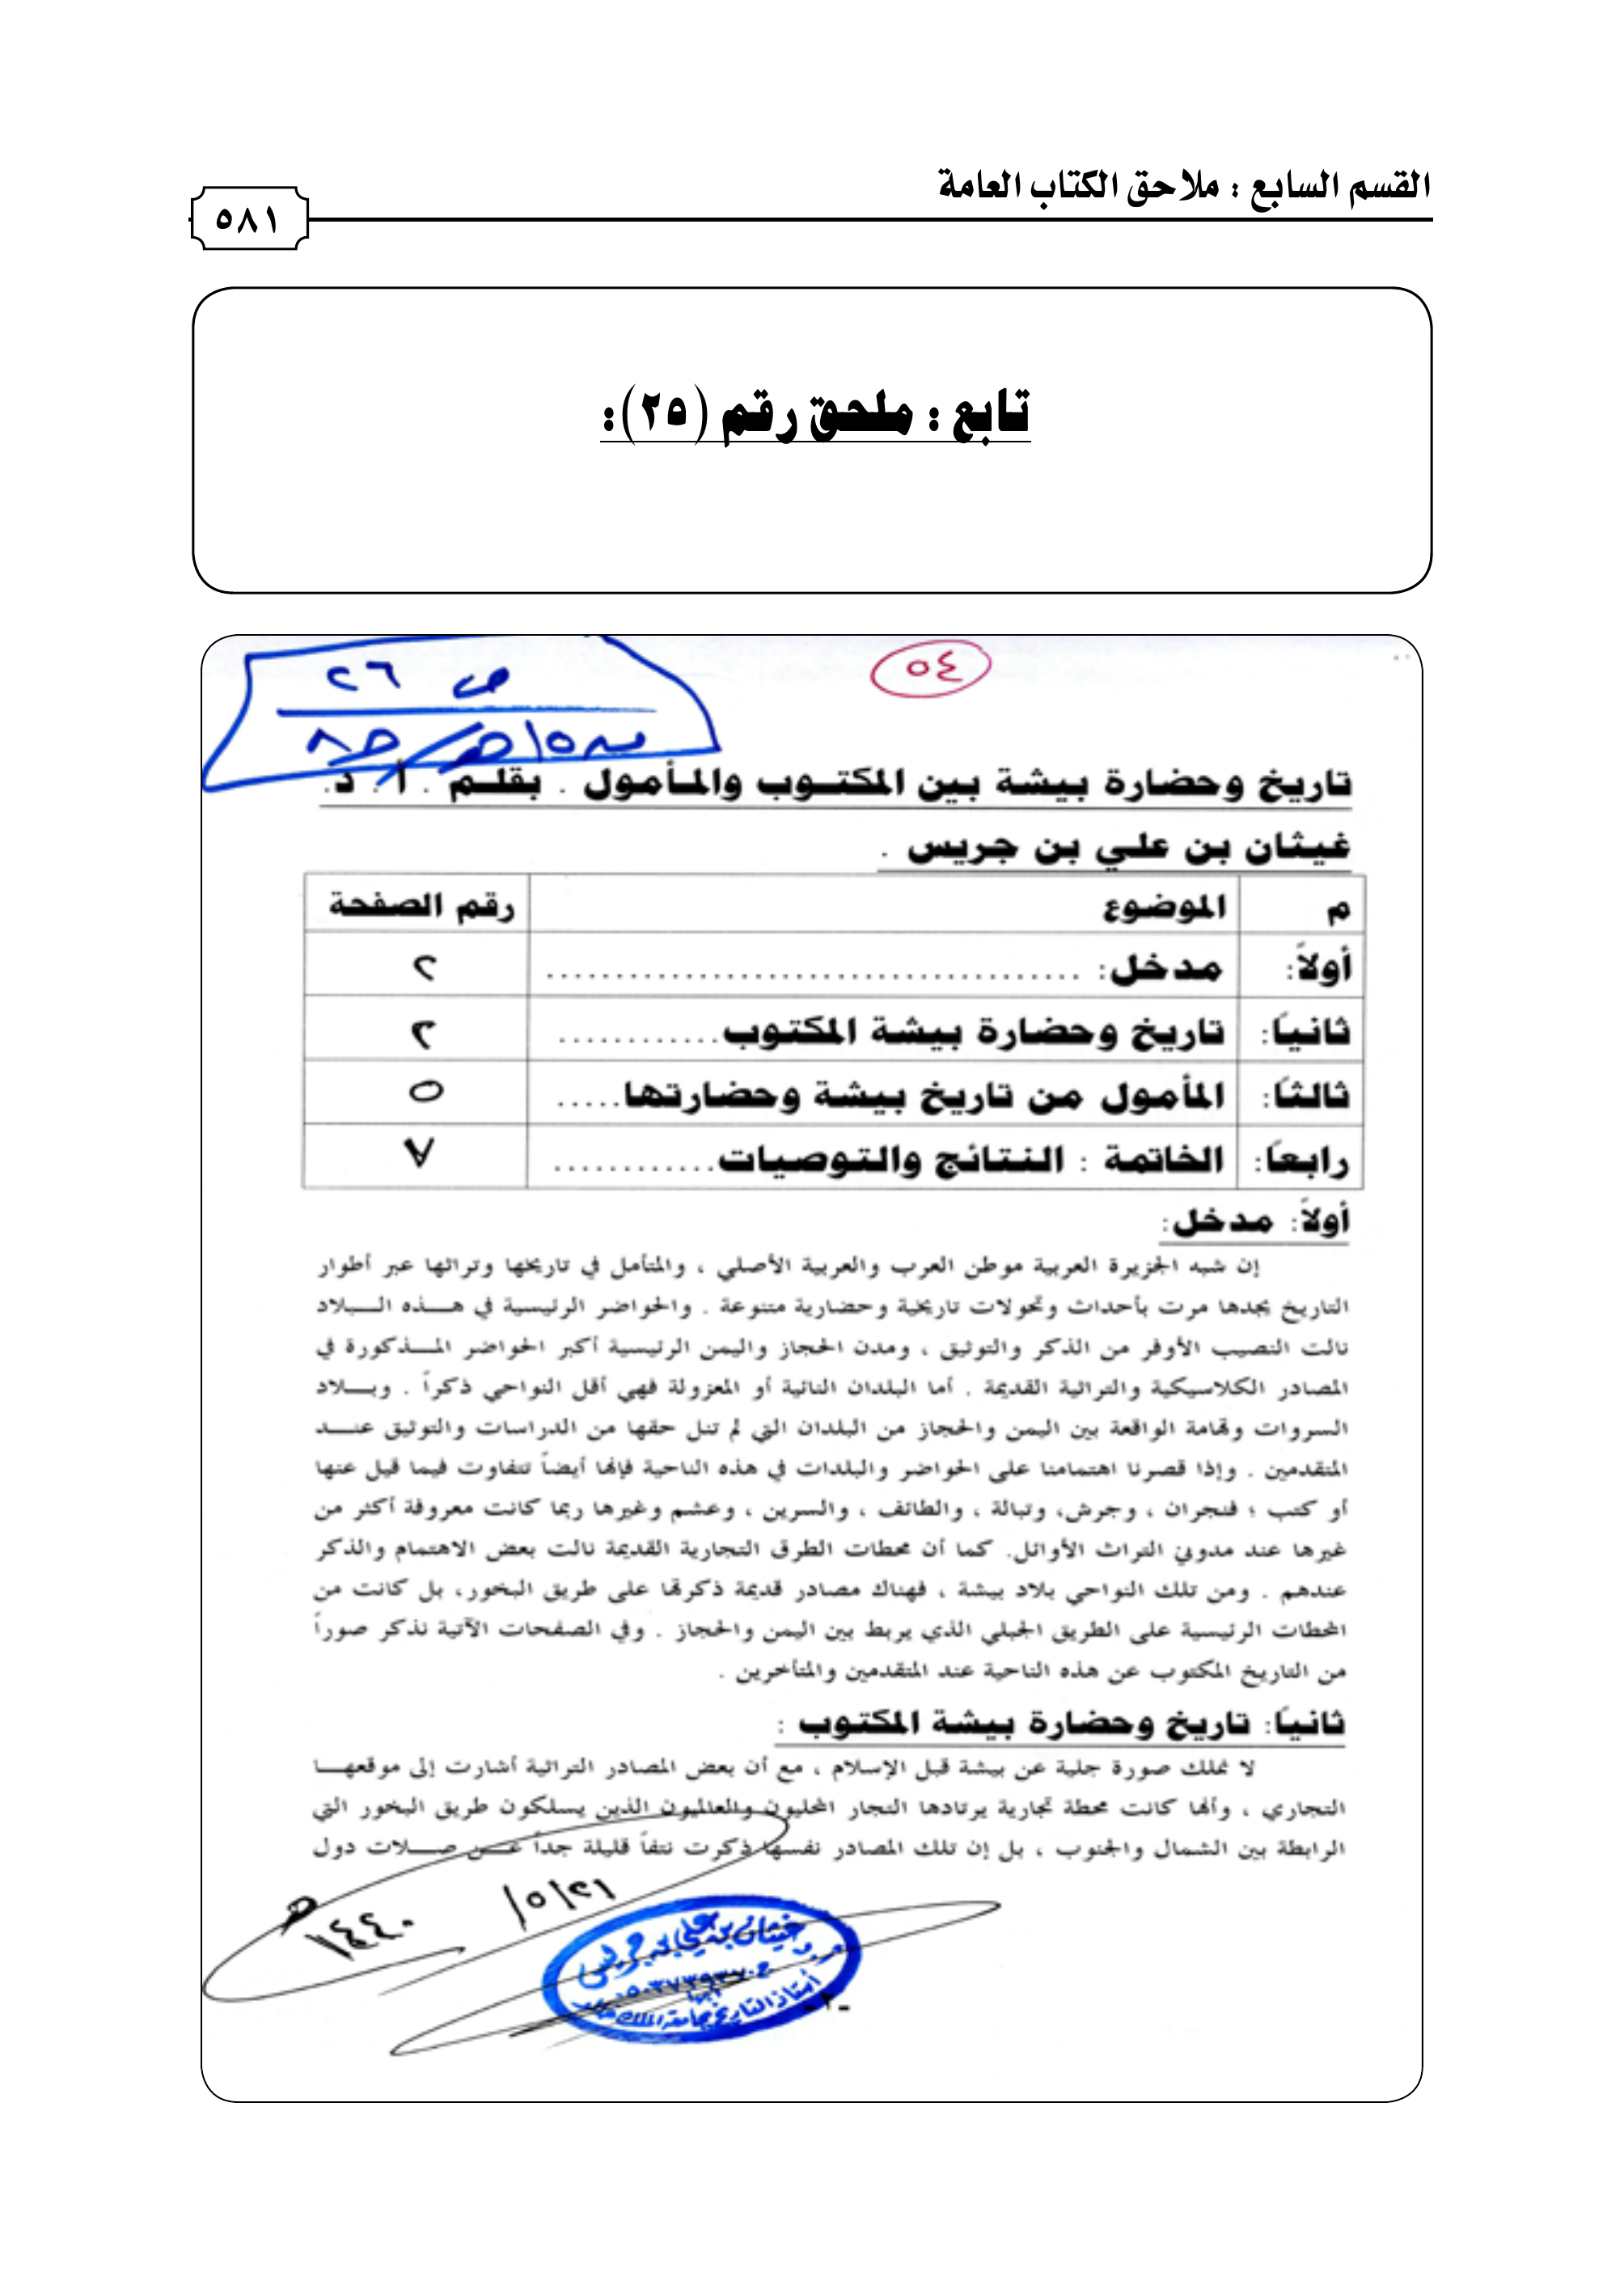 القسم السابع : ملاحق الكتاب العامة
٥٨١
تابع : ملحق رقم (٢٥):
٥٤
ص ٢٦
تاريخ وحضارة بيشة بين المكتوب والمأمول . بقلم . أ . د.
غيثان بن علي بن جريس .
م الموضوع رقم الصفحة
أولاً: مدخل: ...................................... ٢
ثانياً: تاريخ وحضارة بيشة المكتوب............ ٢
ثالثاً: المأمول من تاريخ بيشة وحضارتها..... ٥
رابعاً: الخاتمة : النتائج والتوصيات............
أولاً: مدخل:
إن شبه الجزيرة العربية موطن العرب والعربية الأصلي ، والمتأمل في تاريخها وتراثها عبر أطوار
التاريخ يجدها مرت بأحداث وتحولات تاريخية وحضارية متنوعة . والحواضر الرئيسية في هذه البلاد
نالت النصيب الأوفر من الذكر والتوثيق ، ومدن الحجاز واليمن الرئيسية أكبر الحواضر المذكورة في
المصادر الكلاسيكية والتراثية القديمة . أما البلدان النائية أو المعزولة فهي أقل النواحي ذكراً . وبلاد
السروات وتهامة الواقعة بين اليمن والحجاز من البلدان التي لم تنل حقها من الدراسات والتوثيق عند
المتقدمين . وإذا قصرنا اهتمامنا على الحواضر والبلدات في هذه الناحية فإنها أيضاً تتفاوت فيما قيل عنها
أو كتب ؛ فنجران ، وجرش، وتبالة ، والطائف ، والسرين ، وعشم وغيرها ربما كانت معروفة أكثر من
غيرها عند مدوني التراث الأوائل. كما أن محطات الطرق التجارية القديمة نالت بعض الاهتمام والذكر
عندهم . ومن تلك النواحي بلاد بيشة ، فهناك مصادر قديمة ذكرتها على طريق البخور، بل كانت من
المحطات الرئيسية على الطريق الجبلي الذي يربط بين اليمن والحجاز . وفي الصفحات الآتية نذكر صوراً
من التاريخ المكتوب عن هذه الناحية عند المتقدمين والمتأخرين .
ثانياً: تاريخ وحضارة بيشة المكتوب :
لا نملك صورة جلية عن بيشة قبل الإسلام ، مع أن بعض المصادر التراثية أشارت إلى موقعها
التجاري ، وأنها كانت محطة تجارية يرتادها التجار المحليون والعالميون الذين يسلكون طريق البخور التي
الرابطة بين الشمال والجنوب ، بل إن تلك المصادر نفسها ذكرت نتفاً قليلة جداً عن صلات دول
٢١/٥/
١٤٤٠هـ
غيثان بن علي بن جريس
أستاذ التاريخ بجامعة الملك خالد